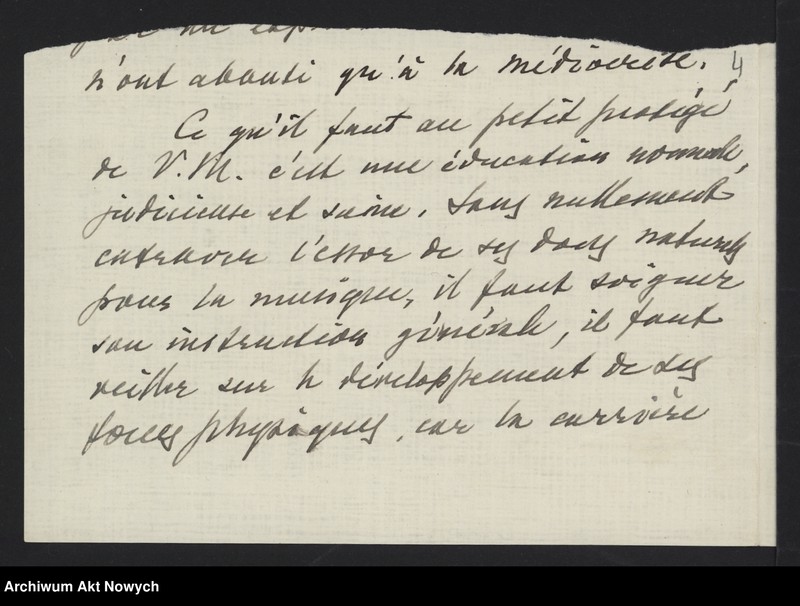 n'ont abouti qu'à la médiocrité.
4
Ce qu'il faut au petit protégé
de V. M. c'est une éducation normale,
judicieuse et saine. Sans nullement
entraver l'essor de ses dons naturels
pour la musique, il faut soigner
son instruction générale, il faut
veiller sur le développement de ses
forces physiques, car la carrière
Archiwum Akt Nowych